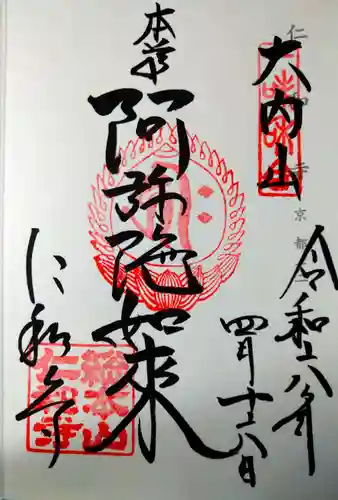 仁和寺 京都
大内山
令和六年
四月十六日
本尊
阿弥陀如来
仁和寺
総本山
仁和寺